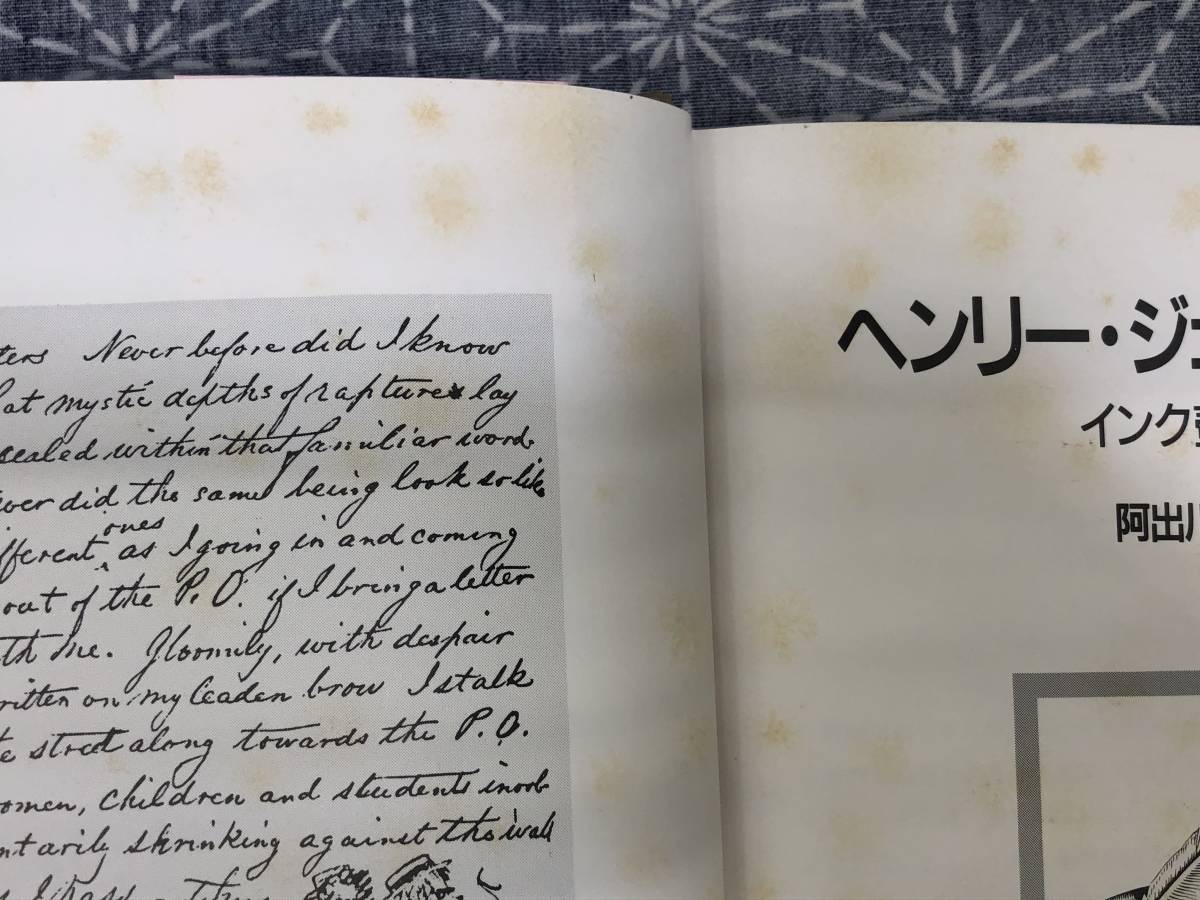 ters Never before did I know
hat mystic depths of rapture lay
sealed within that familiar word.
ever did the same being look so like
ifferent ones as I going in and coming
out of the P.O. if I bring a letter
ith me. Gloomily, with despair
ritten on my leaden brow I stalk
e street along towards the P.O.
omen, children and students invol
ntarily shrinking against the wall
s I pass - thus
ヘンリー・ジェ
インク壺
阿出川